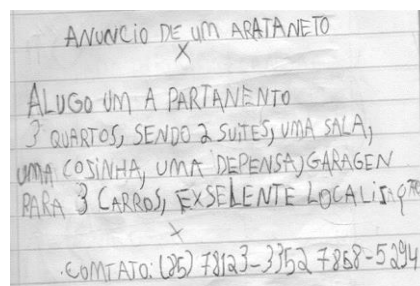 ANUNCIO DE UM ARATANETO
X
ALUGO UM A PARTANENTO
3 QUARTOS, SENDO 2 SUITES, UMA SALA,
UMA COSINHA, UMA DEPENSA, GARAGEN
PARA 3 CARROS, EXSELENTE LOCALISQTÃO
X
COMTATO: (85) 78123-3352 7868-5294